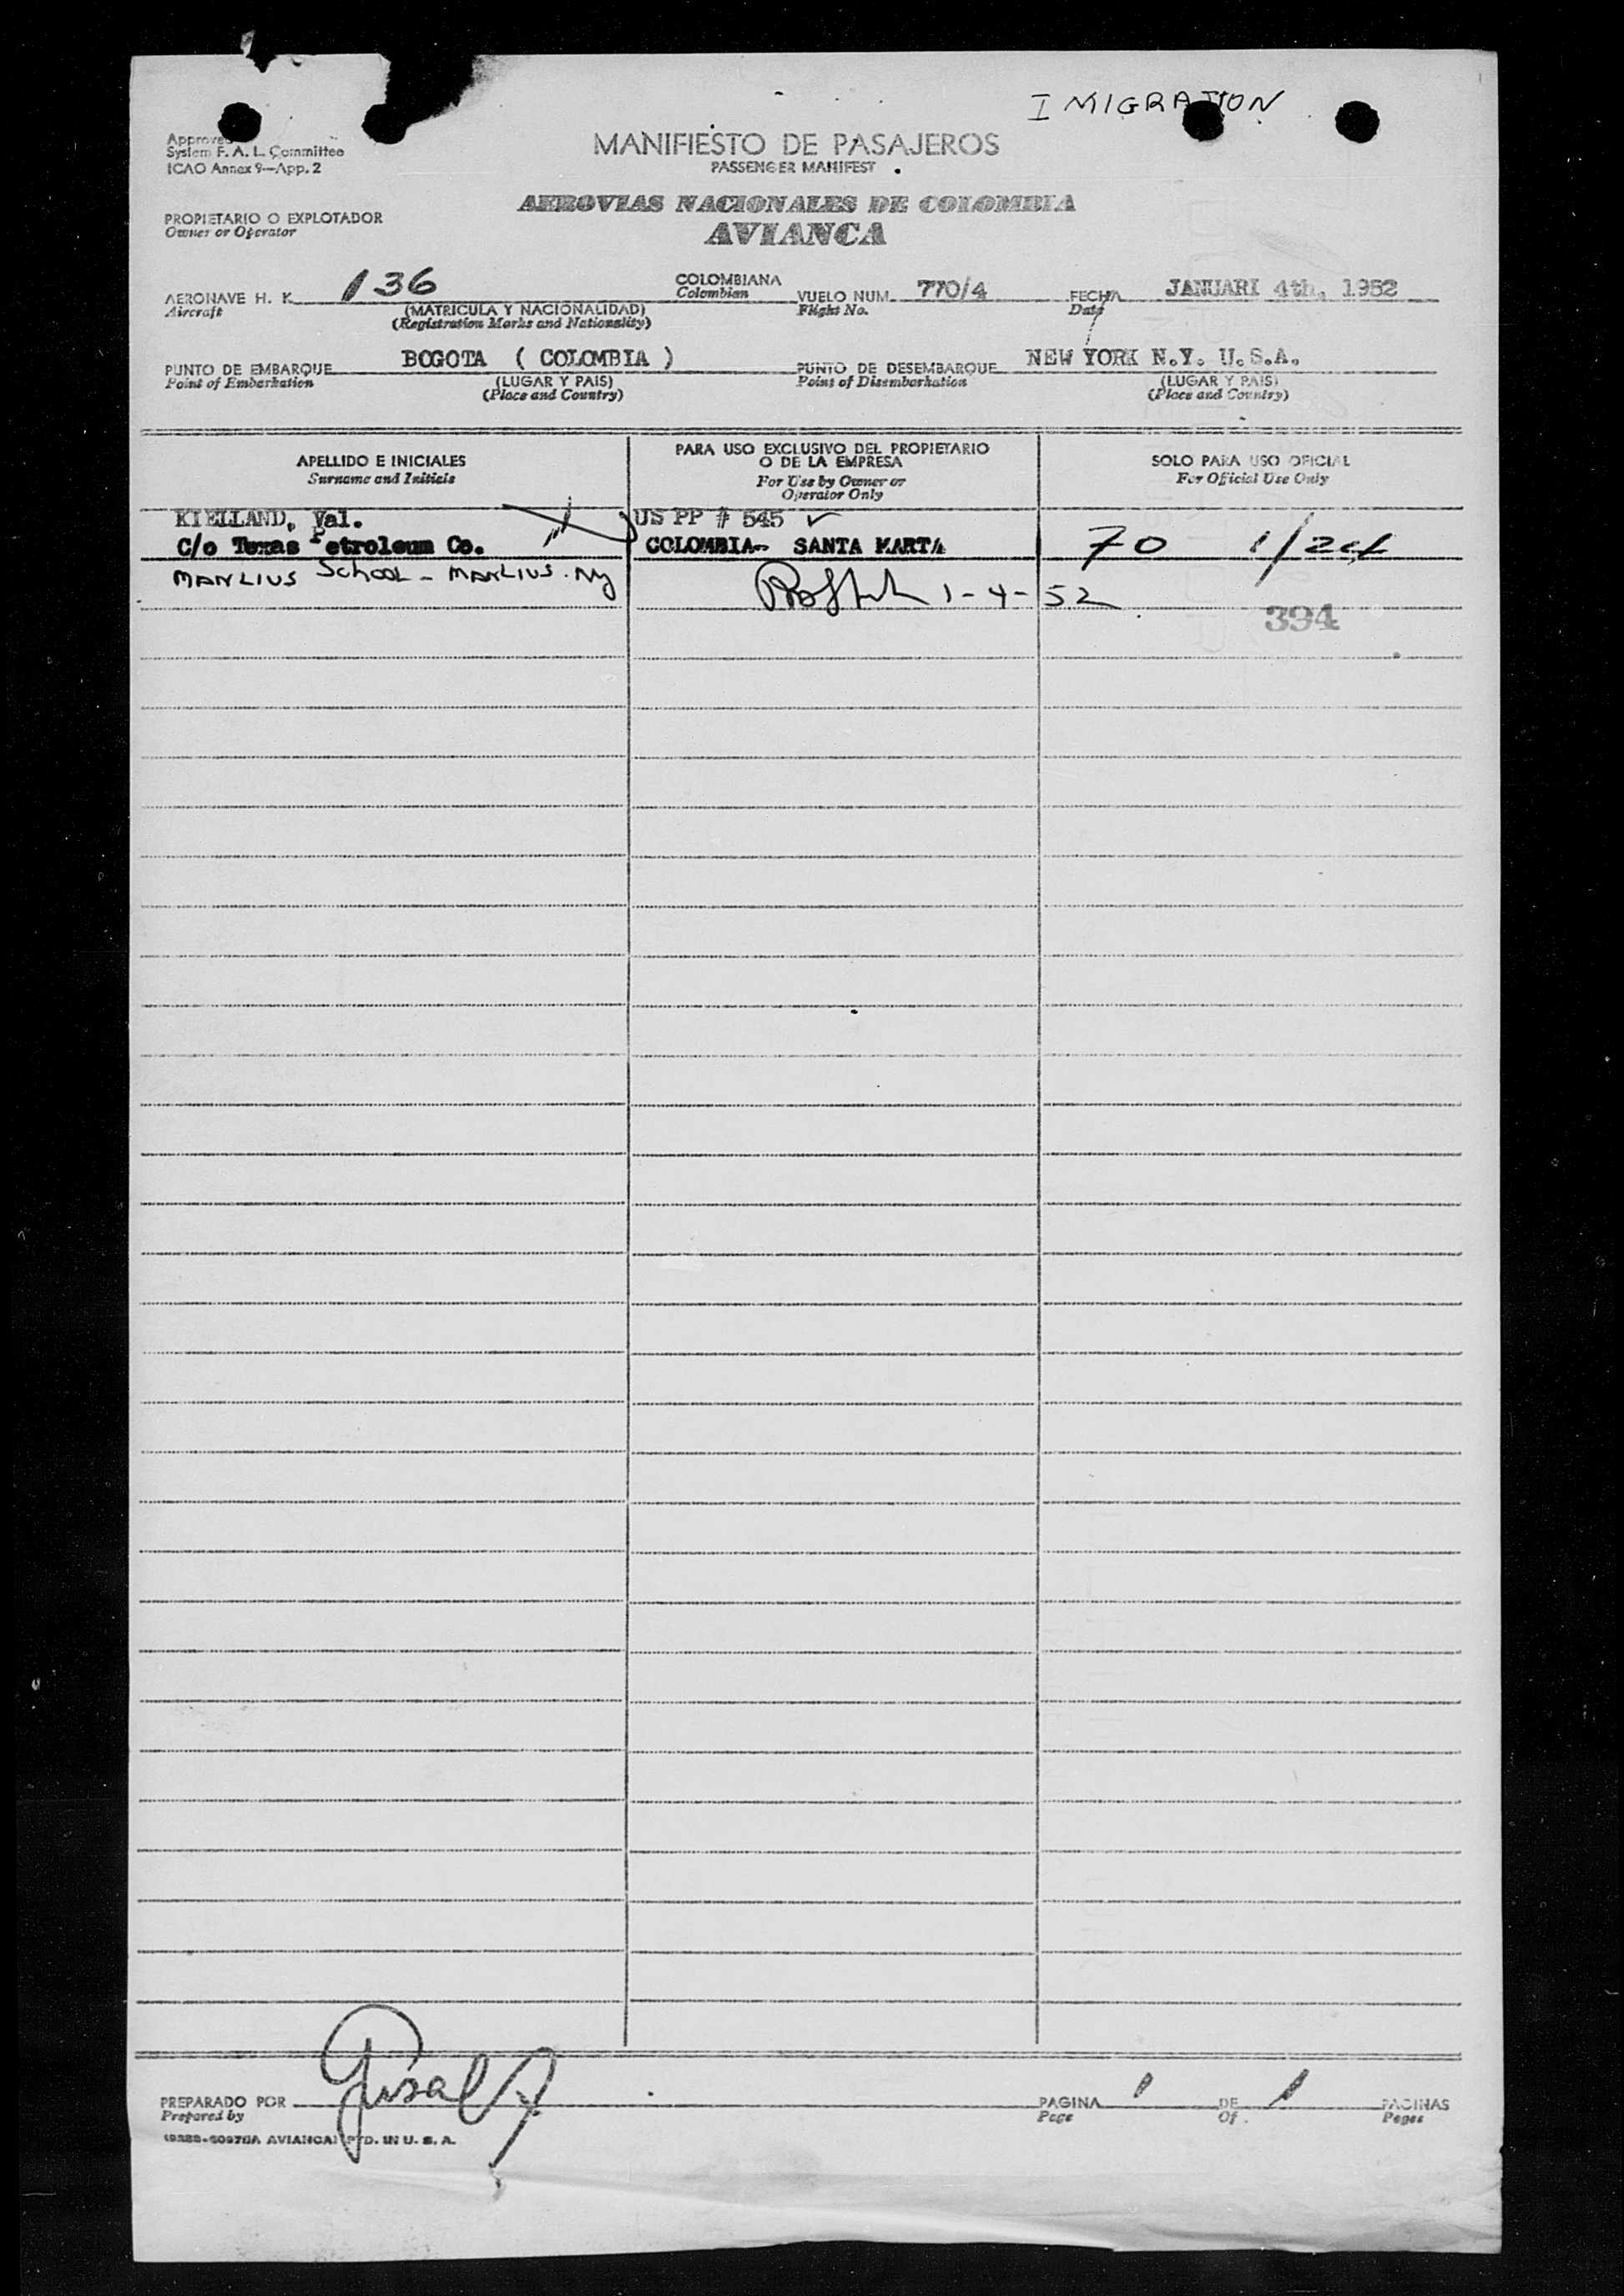 I MIGRATION
Approved
System F. A. L. Committee
ICAO Annex 9—App. 2
MANIFIESTO DE PASAJEROS
PASSENGER MANIFEST
AEROVIAS NACIONALES DE COLOMBIA
AVIANCA
PROPIETARIO O EXPLOTADOR
Owner or Operator
AERONAVE H. K. 136 COLOMBIANA VUELO NUM. 770/4 FECHA JANUARI 4th, 1952
Aircraft (MATRICULA Y NACIONALIDAD) Colombian Flight No. Date
(Registration Marks and Nationality)
PUNTO DE EMBARQUE BOGOTA ( COLOMBIA ) PUNTO DE DESEMBARQUE NEW YORK N.Y. U.S.A.
Point of Embarkation (LUGAR Y PAIS) Point of Disembarkation (LUGAR Y PAIS)
(Place and Country) (Place and Country)
APELLIDO E INICIALES
Surname and Initials
PARA USO EXCLUSIVO DEL PROPIETARIO
O DE LA EMPRESA
For Use by Owner or
Operator Only
SOLO PARA USO OFICIAL
For Official Use Only
KIELLAND, Val. US PP # 545 ✓
C/o Texas Petroleum Co. COLOMBIA- SANTA MARTA 70
MANLIUS School - MANLIUS. Ny
1-4-52
394
PREPARADO POR PAGINA 1 DE 1 PAGINAS
Prepared by Page Of Pages
AVIANCA PTD. IN U. S. A.